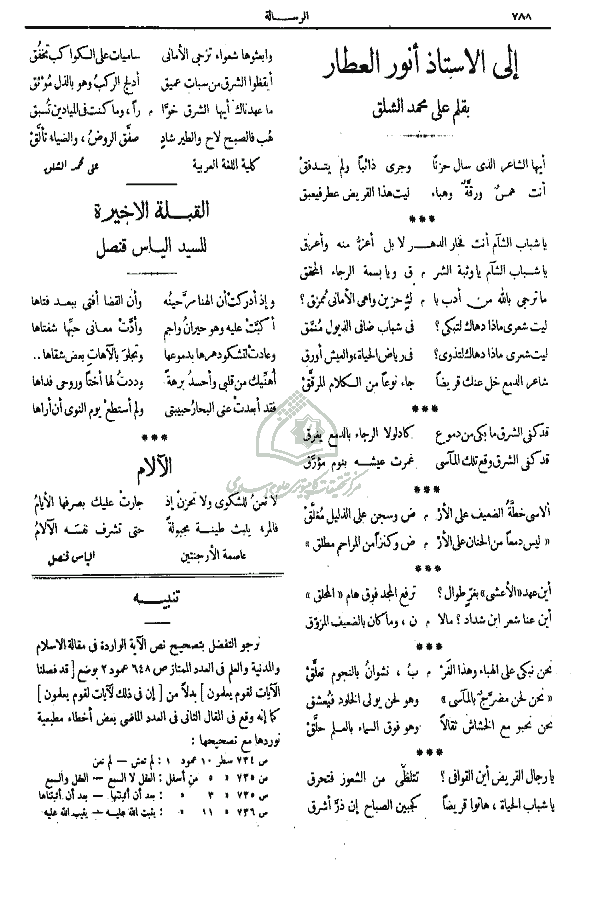 ٧٨٨
الرسالة
إلى الاستاذ أنور العطار
بقلم على محمد الشلق
أيها الشاعر الذى سال حزنا وجرى ذائباً ولم يتدفق
أنت همسٌ ورقةٌ وهباء ليت هذا القريض عطر فيعبق
***
يا شباب الشآم أنت فخار الدهر لا بل أعزُّ منه وأعرق
يا شباب الشآم يا وثبة الشر م ق ويا بسمة الرجاء المحقق
ما ترجى بالله من أدب با م كٍ حزين واهى الأمانى مُمزق؟
ليت شعرى ماذا دهاك لتبكى؟ فى شباب ضافى الذيول مُنمَّق
ليت شعرى ماذا دهاك لتذوى؟ فى رياض الحياة، والعيش أورق
شاعر الدمع خل عنك قريضاً جاء نوعاً من الكلام المرقَّق
***
قد كفى الشرق ما بكى من دموع كاد لولا الرجاء بالدمع يغرق
قد كفى الشرق وقع تلك المآسى غمرت عيشه بنوم مؤرَّق
***
ألأسى خطةُ الضعيف على الأر م ض وسجن على الذليل مُغلَّق
« ليس دمعاً من الحنان على الأر م ض وكنزاً من المراحم مطلق »
***
أين عهد «الأعشى» بغرٍّ طوال؟ ترفع المجد فوق هام « المحلق »
أين عنا شعر ابن شداد؟ مالا م ن، وما كان بالضعيف المزوّق
***
نحن نبكى على الهباء وهذا الغر م ب، نشوانُ بالنجوم تعلَّق
« نحن لحن مضرّجٌ بالمآسى » وهو لحن يولى الخلود فيُعشق
نحن نحبو مع الخشاش ثقالاً وهو فوق السماء بالعلم حلَّق
***
يا رجال القريض أين القوافى؟ تتلظّى من الشعور فتحرق
يا شباب الحياة، هاتوا قريضاً كجبين الصباح إن ذرَّ أشرق
وابعثوها شعواء تزجى الأمانى ساميات على الكواكب تخفُق
أيقظوا الشرق من سبات عميق أدلج الركبُ وهو بالذل مُوثق
ما عهدناك أيها الشرق خوّا م راً، وما كنت فى الميادين تُسبق
هُب فالصبح لاح والطير شادٍ صفّق الروضُ، والضياء تألَّق
كلية اللغة العربية على محمد الشلق
القبلة الاخيرة
للسيد الياس قنصل
وإذ أدركتْ أن الهنا مرَّ حينُه وأن القضا أفنى ببعد فتاها
أكبّتْ عليه وهو حيرانُ واجم وأدَّتْ معانى حبّها شفتاها
وعادتْ لتشكو دهرها بدموعها وتجلوَ بالآهاتِ بعض شقاها..
أهنّيك من قلبى وأحسدُ برهةً وددتُ لها أختاً وروحى فداها
فقد أبعدتْ عنى البحارُ حبيبتى ولم أستطع يوم النوى أن أراها
***
الآلام
لا تعنُ للشكوى ولا تحزن إذ جارتْ عليك بصرفها الأيامُ
فالمرء يلبث طينة مجبولةً حتى تشرف نفسَه الآلامُ
عاصمة الأرجنتين الياس قنصل
تنبيه
نرجو التفضل بتصحيح نص الآية الواردة فى مقالة الاسلام
والمدنية والعلم فى العدد الممتاز ص ٦٤٨ عمود ٢ بوضع [ قد فصلنا
الآيات لقوم يعلمون ] بدلاً من [ إن فى ذلك لآيات لقوم يعلمون ]
كما إنه وقع فى المقال الثانى فى العدد الماضى بعض أخطاء مطبعية
نوردها مع تصحيحها :
ص ٧٣٤ سطر ١٠ عمود ١ : لم تعش — لم تعن
ص ٧٣٥ » ٥ من أسفل : العقل لا السمع — العقل والسمع
ص ٧٣٥ » ٣ » : بعد أن أثبتها — بعد أن أثبتناها
ص ٧٣٦ » ١١ » : يثبت الله عليه — يغيب الله عليه